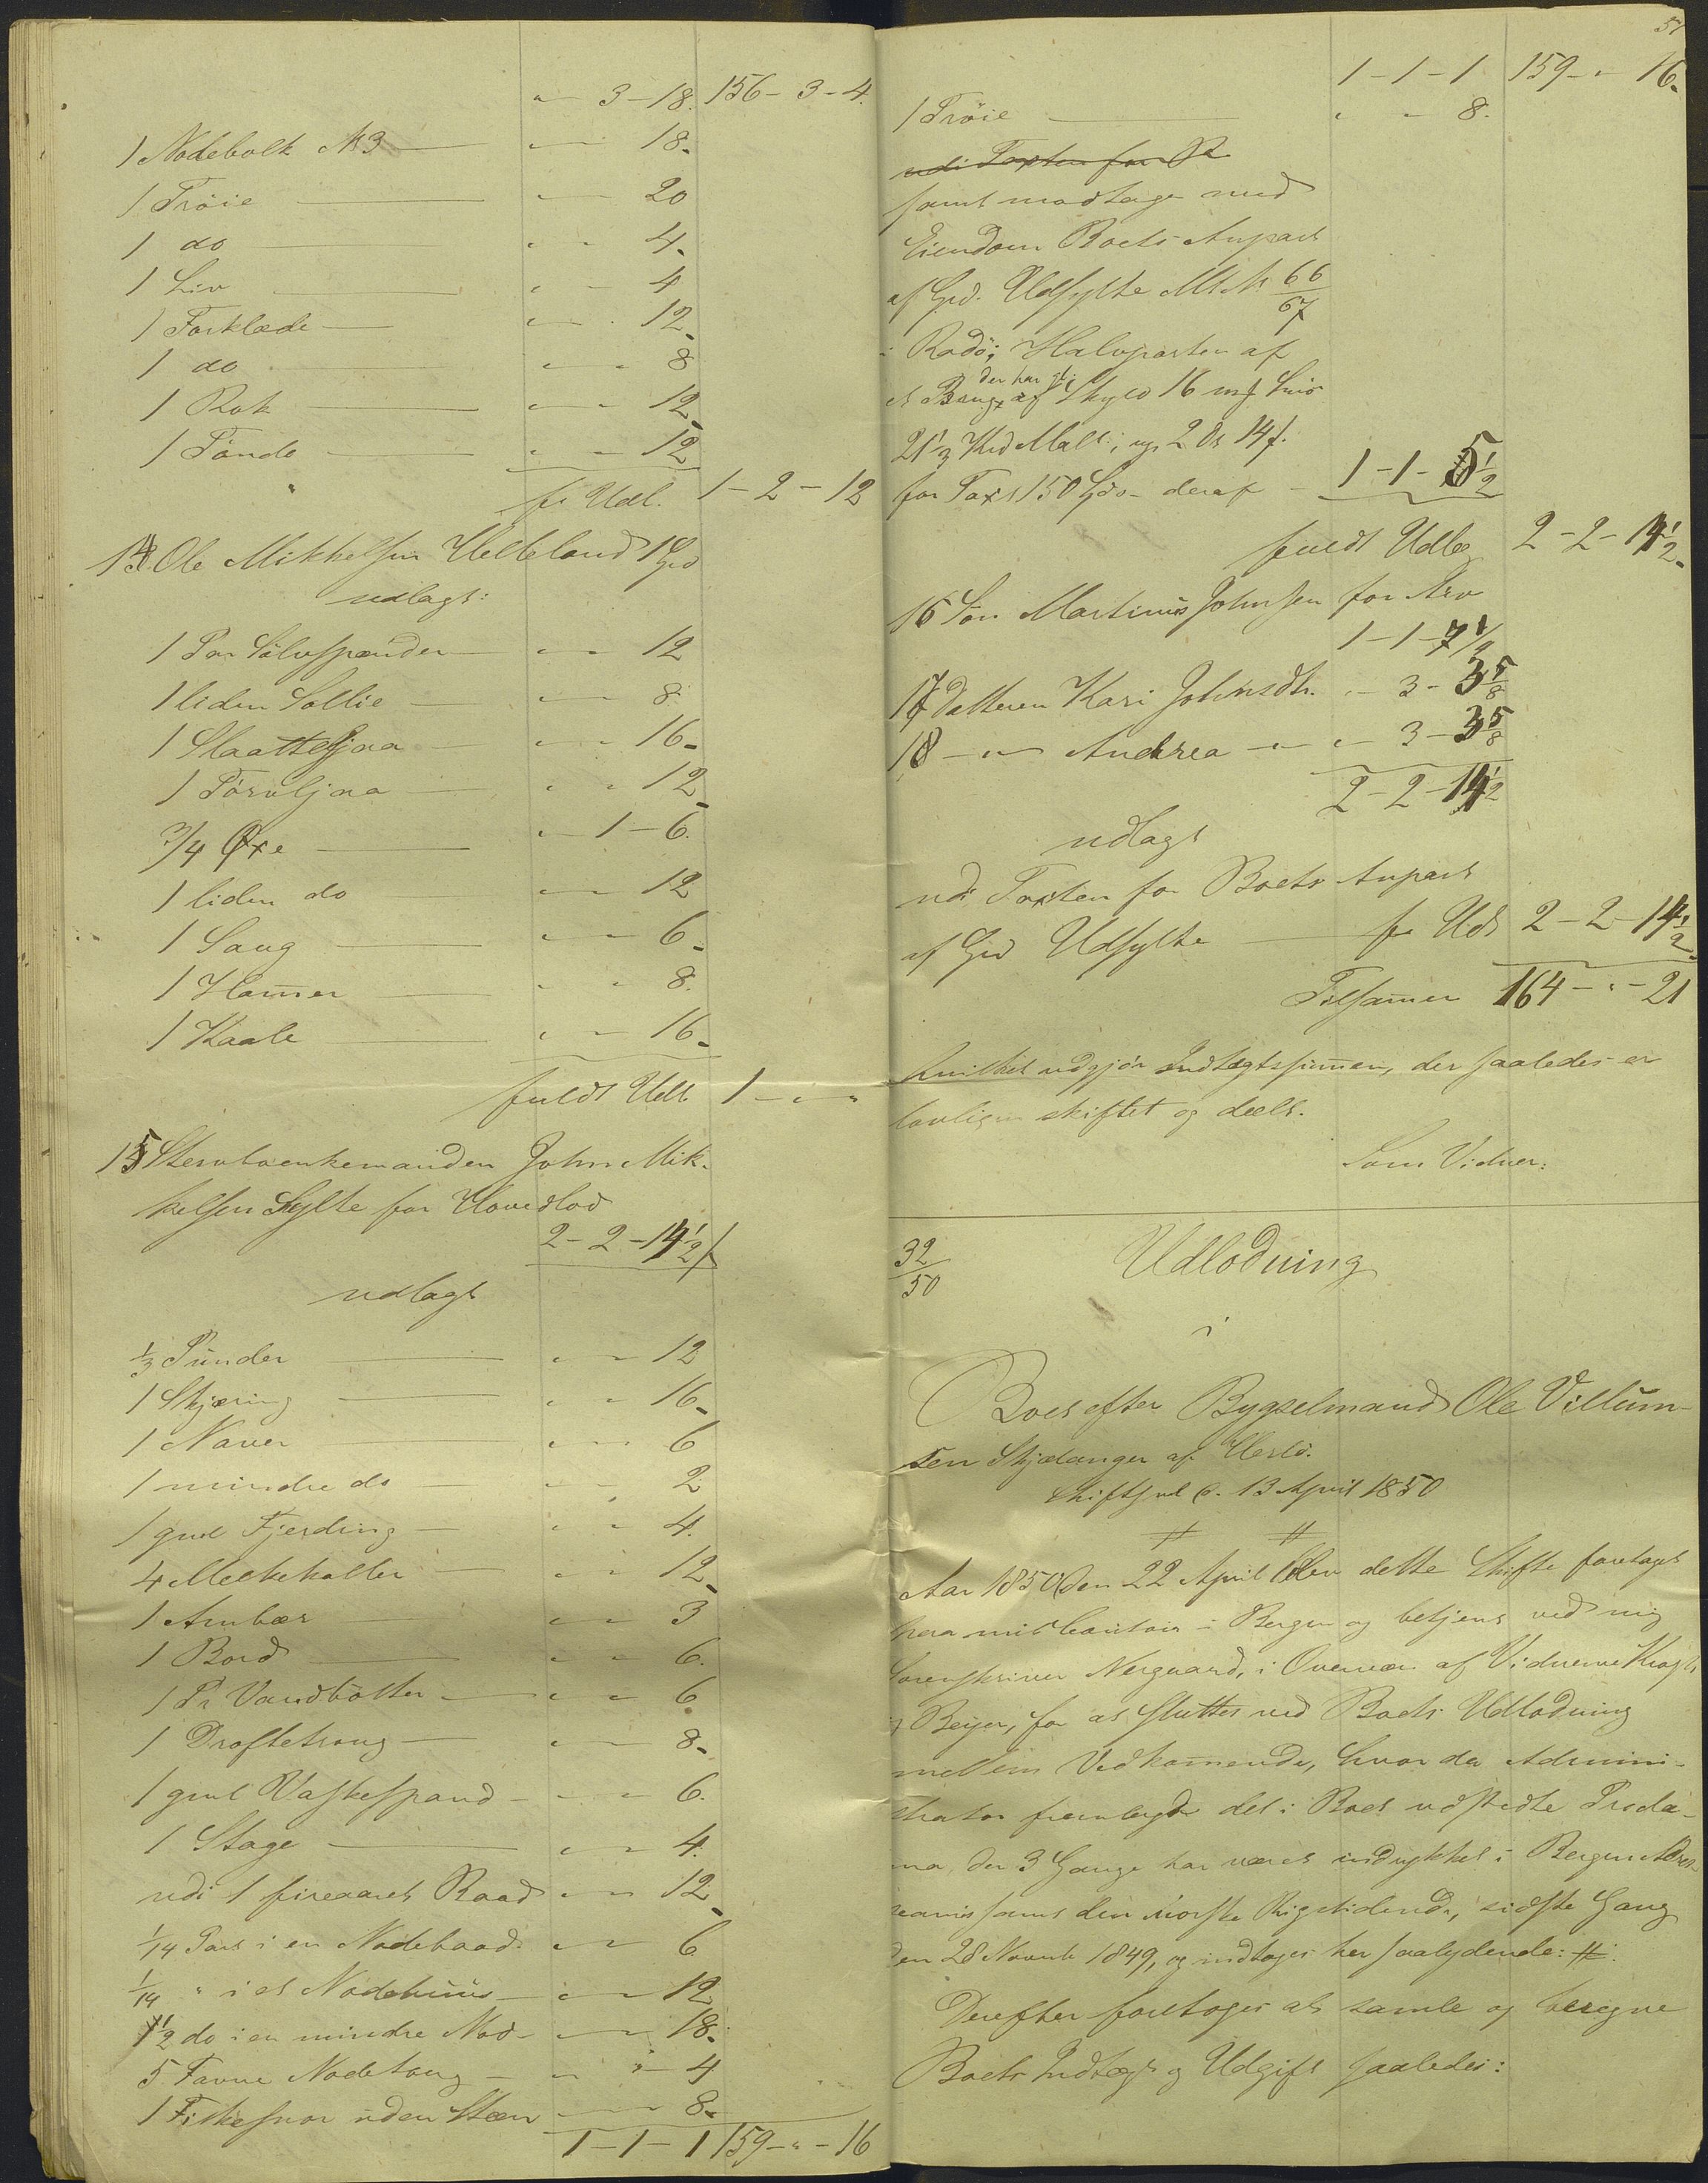 " - 3 - 18. 156 - 3 - 4.
1 Nodebolk N 3 — " - " 18.
1 Trøie — " - " 20
1 do — " - " 4.
1 Liv — " - " 4
1 Forklæde — " - " 12.
1 do — " - " 8
1 Rok — " - " 12.
1 Tønde — " - " 12
fr Udl. 1 - 2 - 12
14. Ole Mikkelsen Helleland 1 Grd
udlagt:
1 Par Sølvspænder — " - " 12
1 liden Sollie — " - " 8.
1 Slaatteljaa — " - " 16.
1 Torvljaa — " - " 12.
3/4 Øxe — " - 1 - 6.
1 liden do — " - " 12
1 Saug — " - " 6.
1 Hammer — " - " 8.
1 Kaale — " - " 16.
fuldt Udl. 1 - " - "
15 Stervboenkemanden John Mik-
kelsen Sylte for Hovedlod
2 - 2 - 14 1/2
udlagt
1/3 Pünder — " - " 12
1 Skjæring — " - " 16.
1 Naver — " - " 6
1 mindre do — " - " 2
1 gml Fjerding — " - " 4.
4 Melkekoller — " - " 12.
1 Ambær — " - " 3
1 Bord — " - " 6.
1 Pr Vandbøtter — " - " 6.
1 Droftetroug — " - " 8.
1 gml Vaskespand — " - " 6.
1 Stage — " - " 4.
udi 1 fireaaret Baad " - " 12.
1/14 Part i en Nodebaad. " - " 6
1/14 " i et Nodehuus — " - " 12
1/2 do i en mindre Nod — " - " 18.
5 Favne Nodetoug — " - " 4
1 Fiskesnor uden Steen — " - " 8.
1 - 1 - 1 159 - " - 16
51
1 - 1 - 1 159 - " - 16.
1 Trøie — " - " 8.
udi Taxten for
samt modtage med
Eiendom Boets Anpart
af Grd. Udsylte M.N. 66/67
i Radø; Halvparten af
et Brug, der har gl. Skyld 16 mf Smør
21 1/3 Kd Malt, ny 2 Ort 14 f.
for Taxt 150 Spd. deraf — 1 - 1 - 5 1/2
fuldt Udlæg 2 - 2 - 14 1/2.
16 Søn Martinus Johnsen for Arv
1 - 1 - 7 1/4
17 Datteren Kari Johnsdtr. " - 3 - 3 5/8
18 — " — Andrea — " — " - 3 - 3 5/8
2 - 2 - 14 1/2
udlagt
udi Taxten for Boets Anpart
af Grd Udsylte — fr Udl 2 - 2 - 14 1/2.
Tilsammen 164 - " - 21
hvilket udgjør Indtægtssummen, der saaledes er
lovligen skiftet og deelt.
Som Vidner:
32/50
Udlodning
i
Boet efter Bygselmand Ole Villum-
sen Skjælanger af Herlø.
Skiftsml. d. 13 April 1850
# #
Aar 1850 den 22 April blev dette Skifte foretaget
paa mit Contoir i Bergen og betjent ved mig
Sorenskriver Nergaard, i Overvær af Vidnerne Krogh
og Beyer, for at sluttes med Boets Udlodning
mellem Vedkommende, hvor da Admini-
strator fremlagde det i Boet udstedte Procla-
ma, der 3 Gange har været indrykket i Bergens Adres-
seavis samt den norske Rigstidende, sidste Gang
den 28 Novemb 1849, og indtages her saalydende: #.
Derefter foretoges at samle og beregne
Boets Indtægt og Udgift saaledes: